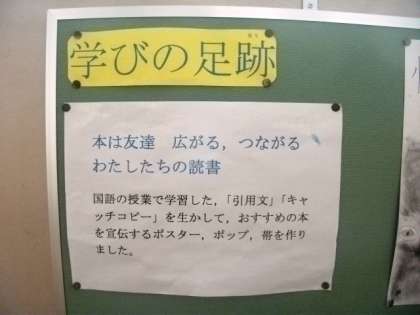 学びの足跡
本は友達　広がる，つながる
わたしたちの読書
国語の授業で学習した，「引用文」「キャ
ッチコピー」を生かして，おすすめの本
を宣伝するポスター，ポップ，帯を作り
ました。